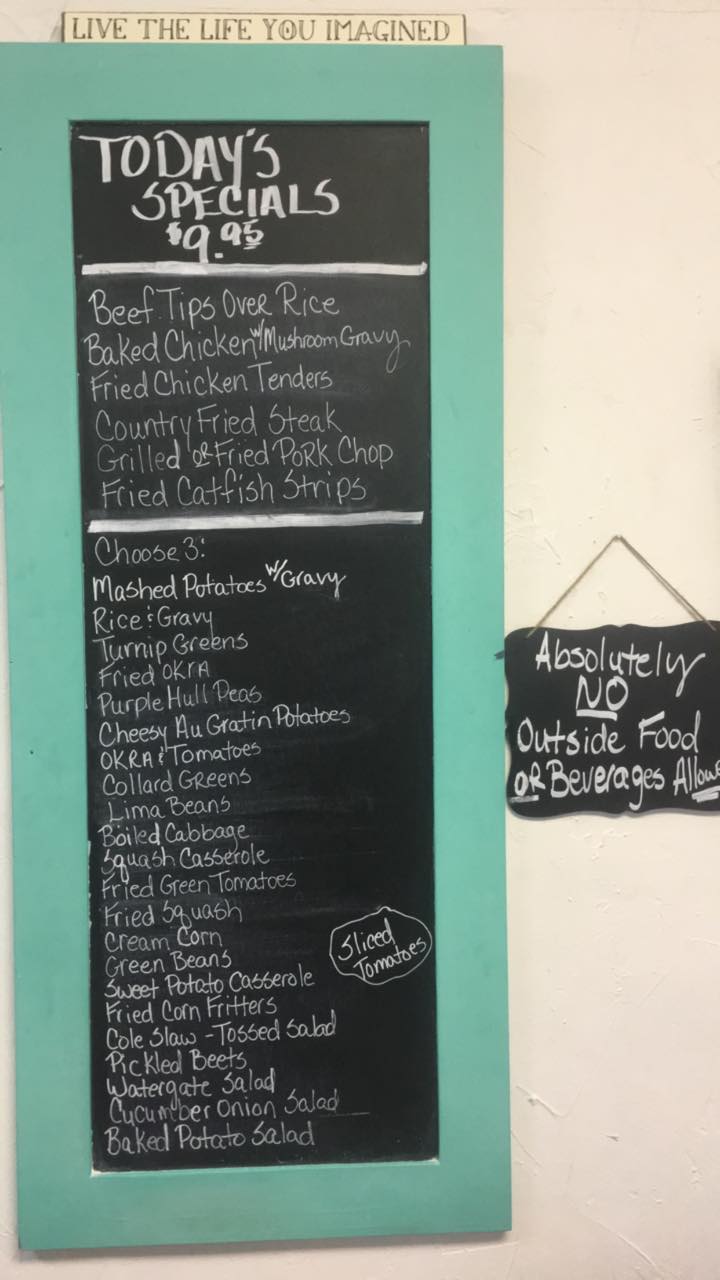 LIVE THE LIFE YOU IMAGINED
TODAY'S
SPECIALS
$9.95
Beef Tips Over Rice
Baked Chicken w/Mushroom Gravy
Fried Chicken Tenders
Country Fried Steak
Grilled OR Fried PORK Chop
Fried Catfish Strips
Choose 3:
Mashed Potatoes w/Gravy
Rice & Gravy
Turnip Greens
Fried OKRA
Purple Hull Peas
Cheesy Au Gratin Potatoes
OKRA & Tomatoes
Collard Greens
Lima Beans
Boiled Cabbage
Squash Casserole
Fried Green Tomatoes
Fried Squash
Cream Corn
Green Beans
Sweet Potato Casserole
Fried Corn Fritters
Cole Slaw - Tossed Salad
Pickled Beets
Watergate Salad
Cucumber Onion Salad
Baked Potato Salad
Sliced
Tomatoes
Absolutely
NO
Outside Food
OR Beverages Allowe